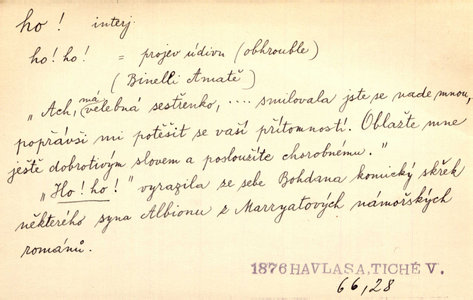 ho! interj
ho! ho! = projev údivu (obhrouble)
(Binelli Amatě)
„Ach, má velebná sestřenko, .... smilovala jste se nade mnou,
popřávši mi potěšit se vaší přítomností. Oblažte mne
ještě dobrotivým slovem a posloužíte chorobnému."
„Ho! ho!" vyrazila se sebe Bohdana komický skřek
některého syna Albionu z Marryatových námořských
románů.
1876 HAVLASA, TICHÉ V.
66,28